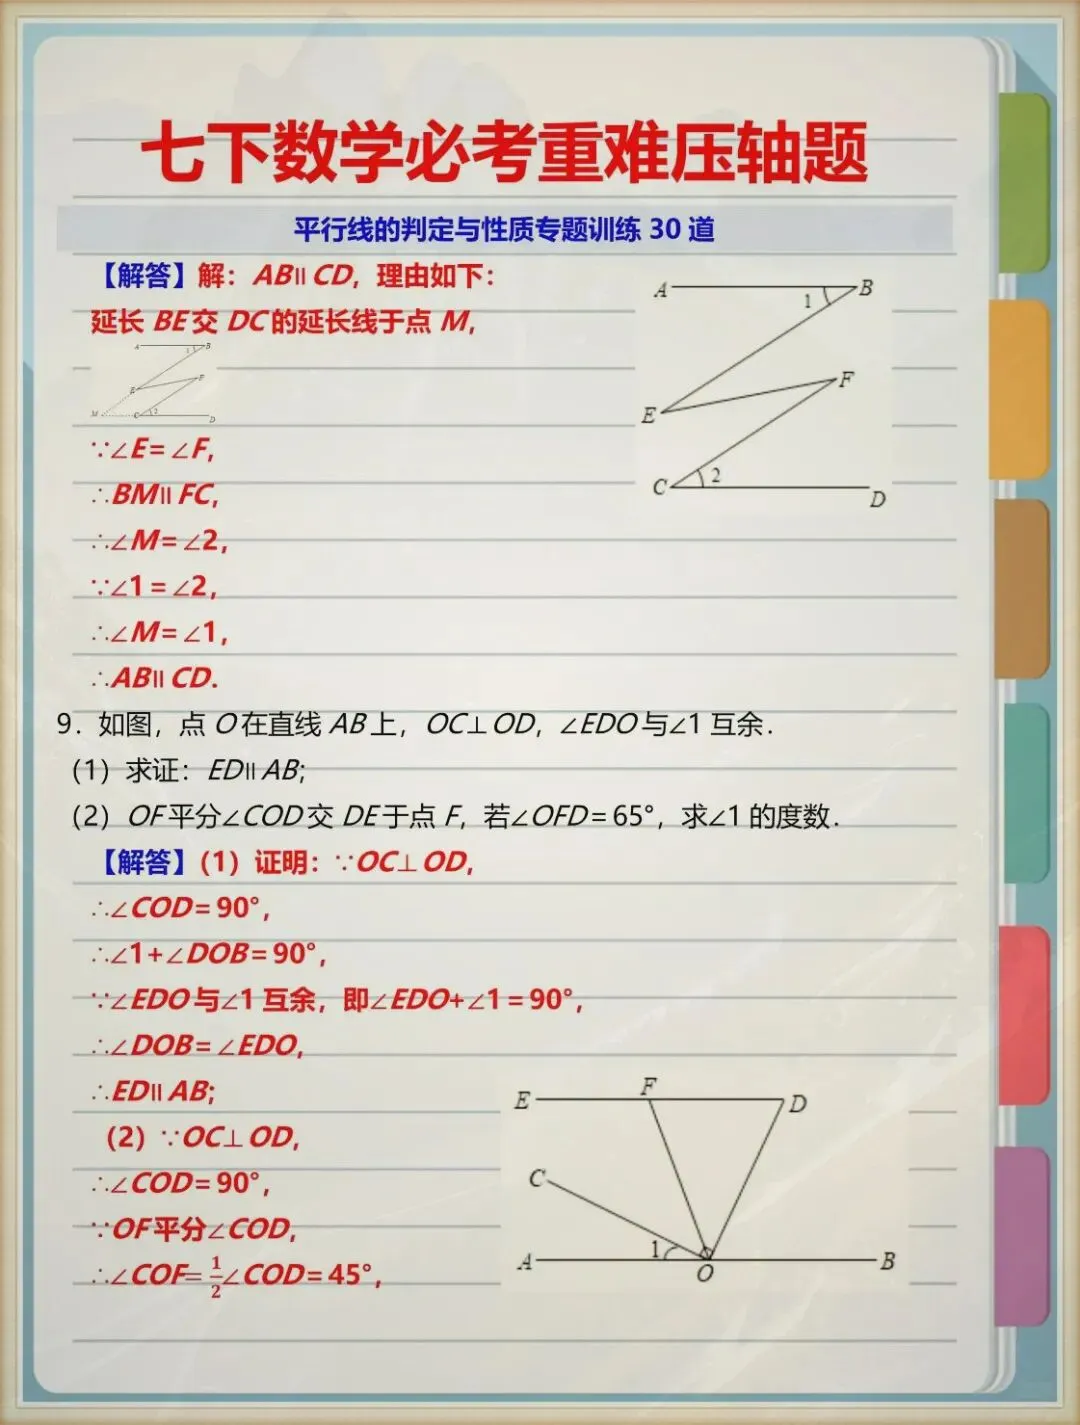 七下数学必考重难压轴题
平行线的判定与性质专题训练 30 道
【解答】解：AB∥CD，理由如下：
延长 BE 交 DC 的延长线于点 M，
A B 1
E F
M C 2 D
A 1 B
F
E
C 2
D
∵∠E=∠F，
∴BM∥FC，
∴∠M=∠2，
∵∠1=∠2，
∴∠M=∠1，
∴AB∥CD．
9．如图，点 O 在直线 AB 上，OC⊥OD，∠EDO 与∠1 互余．
（1）求证：ED∥AB；
（2）OF 平分∠COD 交 DE 于点 F，若∠OFD=65°，求∠1 的度数．
【解答】（1）证明：∵OC⊥OD，
∴∠COD=90°，
∴∠1+∠DOB=90°，
∵∠EDO 与∠1 互余，即∠EDO+∠1=90°，
∴∠DOB=∠EDO，
∴ED∥AB；
（2）∵OC⊥OD，
∴∠COD=90°，
∵OF 平分∠COD，
∴∠COF=1/2∠COD=45°，
E F D
C
A 1 O B